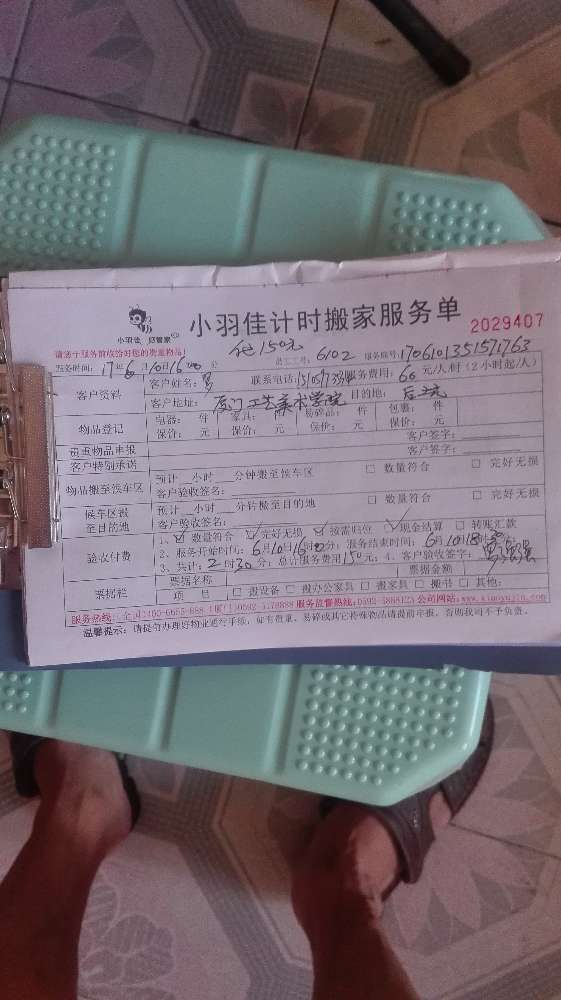 小羽佳 好管家
小羽佳计时搬家服务单
2029407
请您于服务前收拾好您的贵重物品！
包150元
员工工号：6102 服务账号：170610135157763
服务时间：17年6月 时 分
客户资料 客户姓名：罗 联系电话： 服务费用：60元/人/时(2小时起/人)
客户地址：厦门工艺美术学院 目的地：
物品登记 电器： 件 家具： 件 易碎品： 件 包裹： 件
保价： 元 保价： 元 保价： 元 保价： 元
贵重物品申报 客户签字：
客户特别承诺 客户签字：
物品搬至候车区 预计 小时 分钟搬至候车区 □ 数量符合 □ 完好无损
客户验收签名：
候车区搬至目的地 预计 小时 分钟搬至目的地 □ 数量符合 □ 完好无损
客户验收签名：
验收付费 1、☑ 数量符合 ☑ 完好无损 ☑ 按需归位 ☑ 现金结算 □ 转账汇款
2、服务开始时间：6月10日16时 分；服务结束时间：6月10日18时
3、共计：2时30分；总计服务费用150元；4、客户验收签字：
票据栏 票据名称 票据金额
项 目 □ 搬设备 □ 搬办公家具 □ 搬家具 □ 搬书 □ 其他：
服务热线： 服务监督热线：0592-5888123 公司网站：www.xiaoyujia.com
温馨提示：请提前办理好物业通行手续，如有笨重、易碎或其它特殊物品请提前申报，否则我司不予负责。